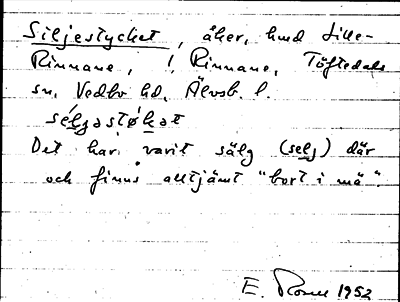 Siljestycket, åker, hmd Lille-
Rinnane, ! Rinnane, Töftedals
sn, Vedbo hd, Älvsb. l.
séljastøkat
Det har varit sälg (selj) där
och finns alltjämt "bort i mä".
E. 1952